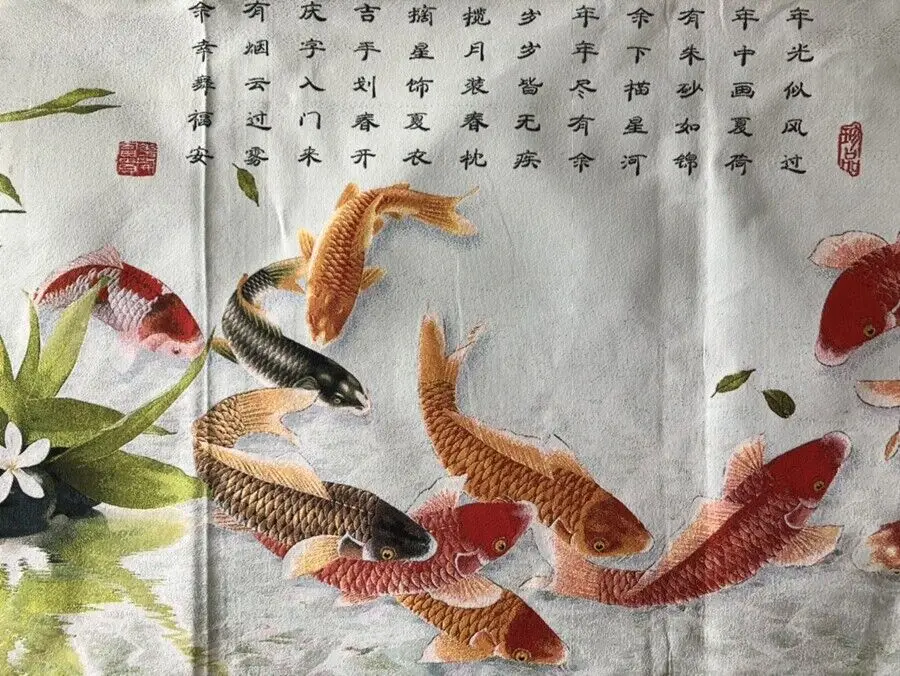 年光似风过
年中画夏荷
有朱砂如锦
余下描星河
年年尽有余
岁岁皆无疾
揽月装春枕
摘星饰夏衣
吉手划春开
庆字入门来
有烟云过雾
余幸舞福安